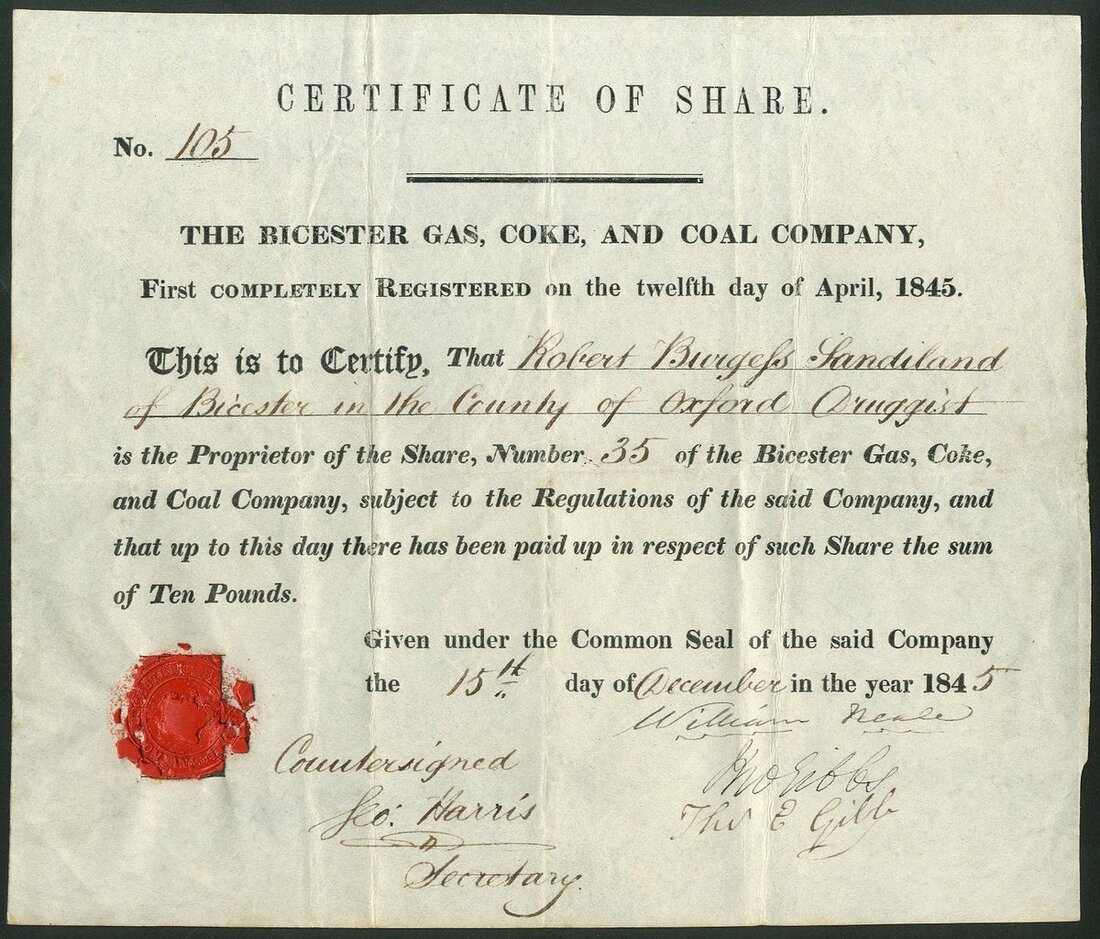 CERTIFICATE OF SHARE.
No. 105
THE BICESTER GAS, COKE, AND COAL COMPANY,
First COMPLETELY REGISTERED on the twelfth day of April, 1845.
This is to Certify, That Robert Burgeſs Sandiland
of Bicester in the County of Oxford Druggist
is the Proprietor of the Share, Number 35 of the Bicester Gas, Coke,
and Coal Company, subject to the Regulations of the said Company, and
that up to this day there has been paid up in respect of such Share the sum
of Ten Pounds.
Given under the Common Seal of the said Company
the 15th day of December in the year 1845
William Neale
Jno Gibbs
Countersigned
Geo: Harris
Thos E Gibb
Secretary.